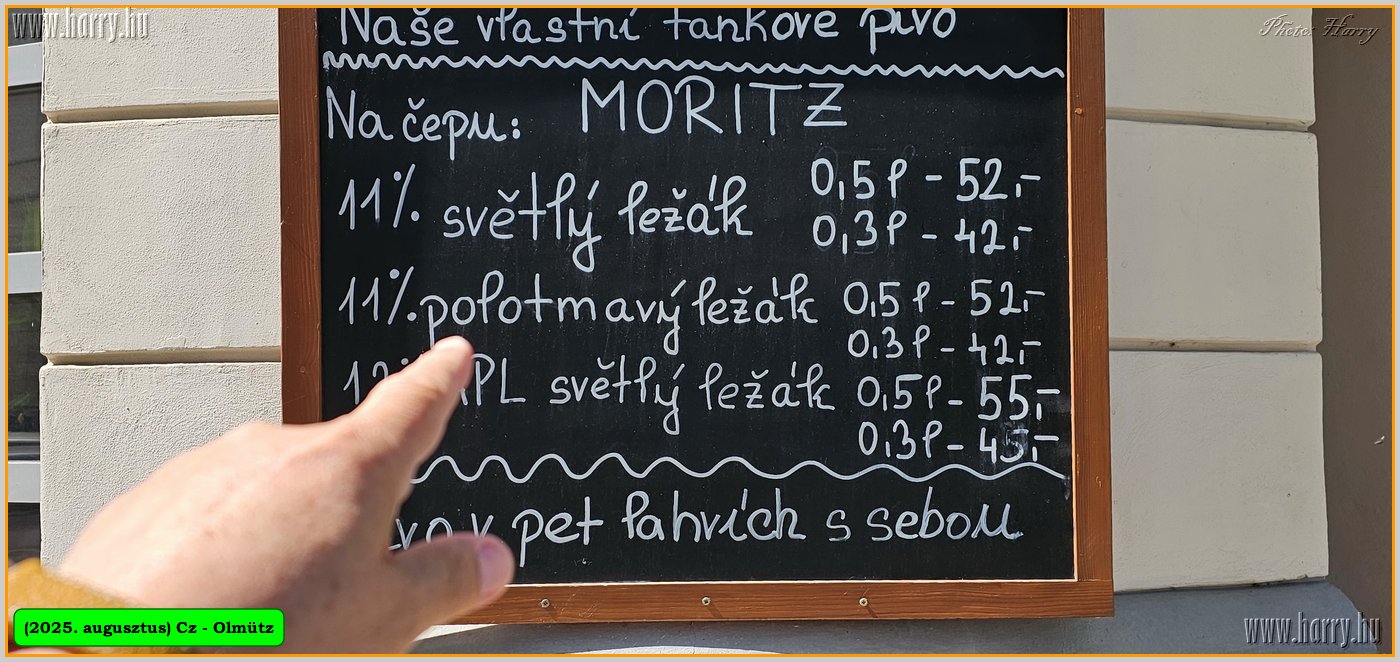 www.harry.hu
Photo: Harry
Naše vlastní tankove pivo
Na čepu: MORITZ
11% světlý ležák 0,5l - 52,-
0,3l - 42,-
11% polotmavý ležák 0,5l - 52,-
0,3l - 42,-
světlý ležák 0,5l - 55,-
0,3l - 45,-
v pet lahvích s sebou
(2025. augusztus) Cz - Olmütz
www.harry.hu